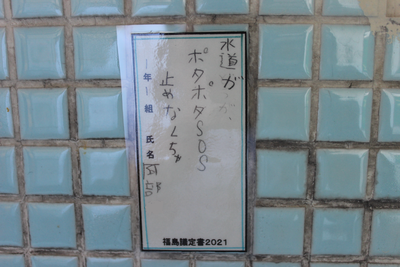 水道が
ポタポタSOS
止めなくちゃ
一年一組 氏名 阿部
福島議定書2021